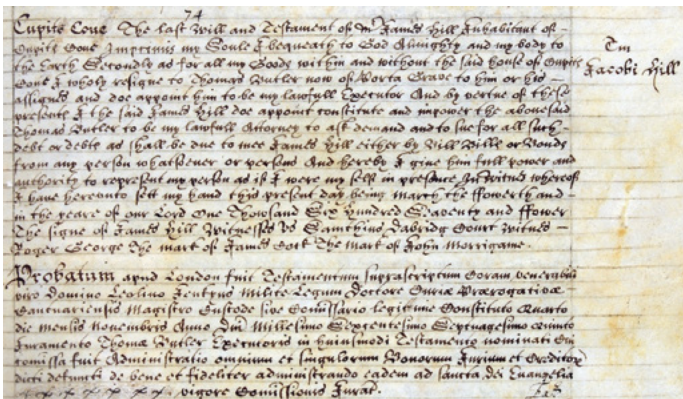 74
Cupits Cove The last Will and Testament of Mr James Hill Inhabitant of
Cupits Cove Imprimis my Soule I bequeath to God Almighty and my body to
the Earth Secondly as for all my Goods within and without the said house of Cupits
Cove I wholy resigne to Thomas Butler now of Porta Grave to him or his
assignes and doe appoint him to be my lawfull Executor And by vertue of these
presents I the said James Hill doe appoint constitute and impower the abovesaid
Thomas Butler to be my lawfull Attorney to ask demand and to sue for all such
debt or debts as shall be due to mee James Hill either by Bill Bills or Bonds
from any person whatsoever or persons And hereby I give him full power and
authority to represent my person as if I were my self in presence In witnes whereof
I have hereunto sett my hand this present day being March the ffowerth and
in the yeare of our Lord One Thowsand Six Hundred Seaventy and ffower
The signe of James Hill Witnesses Court witnes
Roger George The mark of James Cock The mark of John Morrigame.
Tm
Jacobi Hill
Probatum apud London fuit Testamentum suprascriptum Coram venerabili
viro Domino Leolino Jenkyns Milite Legum Doctore Curiae Praerogativae
Cantuariensis Magistro Custode sive Comissario legitime Constituto Quarto
die mensis Novembris Anno Dni Millesimo Sexcentesimo Septuagesimo Quinto
Juramento Thomae Butler Executoris in huiusmodi Testamento nominati Cui
comissa fuit Administratio omnium et singulorum Bonorum Jurium et Creditorum
dicti defuncti de bene et fideliter administrando eadem ad sancta dei Evangelia
vigore Comissionis Jurat.